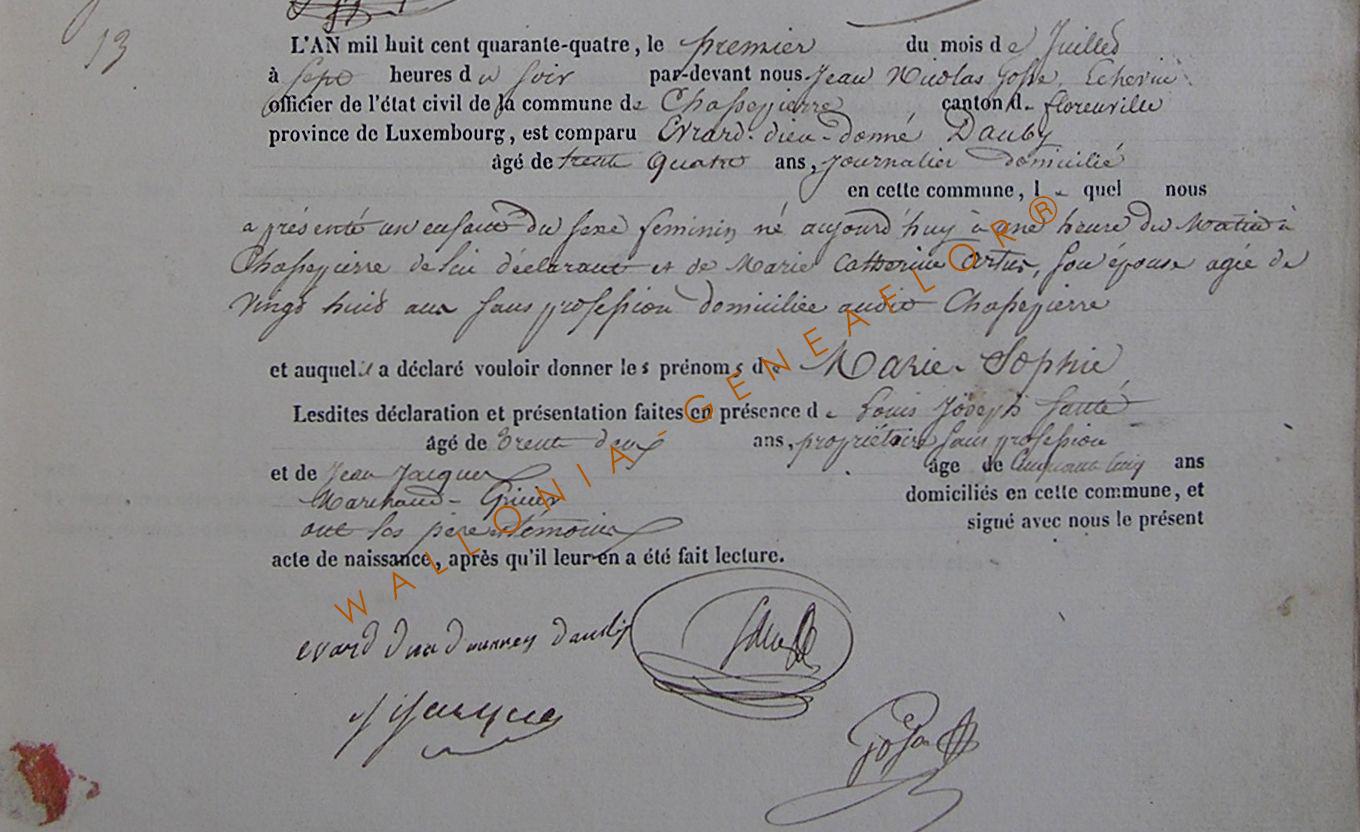 13
L'AN mil huit cent quarante-quatre, le premier du mois de Juillet
à sept heures du soir par-devant nous Jean Nicolas Josse Echevin
officier de l'état civil de la commune de Chassepierre canton d. florenville
province de Luxembourg, est comparu Evrard-dieu-donné Dauby
âgé de trente quatre ans, journalier domicilié
en cette commune, le quel nous
a présenté un enfant du sexe feminin né aujourd'huy à une heure du Matin à
Chassepierre de lui déclarant et de Marie Catherine Artus, son épouse agée de
vingt huit ans sans profession domiciliée audit Chassepierre
et auquel il a déclaré vouloir donner les prénoms de Marie-Sophie
Lesdites déclaration et présentation faites en présence de Louis Joseph
âgé de trente deux ans, propriétaire sans profession
et de Jean Jacques âgé de Cinquante Cinq ans
Marchand domiciliés en cette commune, et
ont les père témoins signé avec nous le présent
acte de naissance, après qu'il leur en a été fait lecture.
WALLONIA-GENEAFLOR®
evard dieu
JJJacques
Josse